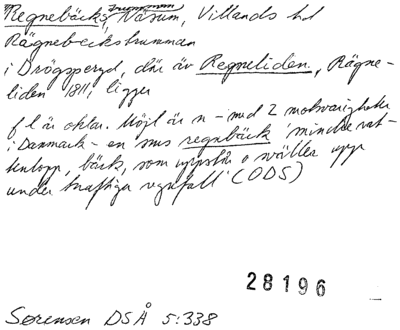 Regnebäckstrumman, Näsum, Villands hd
Rägnebeckstrumman
i Drögsperyd, där är Regneliden, Rägne-
liden 1811, ligger
f l är oklar. Möjl är n – med 2 motsvarigheter
i Danmark – en sms regnbäck 'mindre vat-
tenlopp, bäck, som uppstår o sväller upp
under kraftiga regnfall' (ODS)
28196
Sørensen DSÅ 5:338